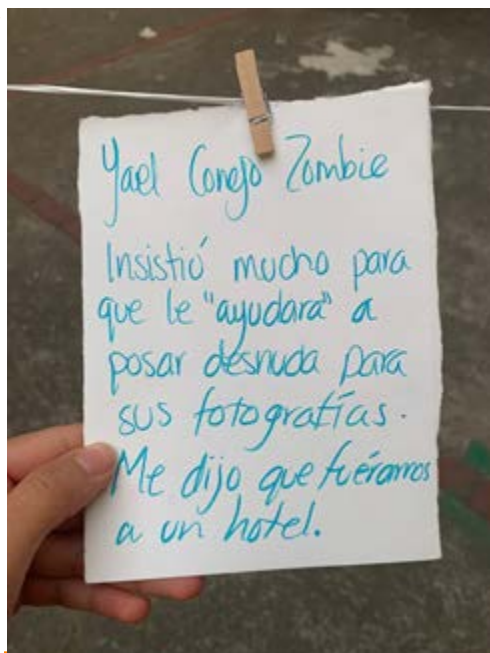 Yael Conejo Zombie
Insistió mucho para
que le "ayudara" a
posar desnuda para
sus fotografías.
Me dijo que fuéramos
a un hotel.